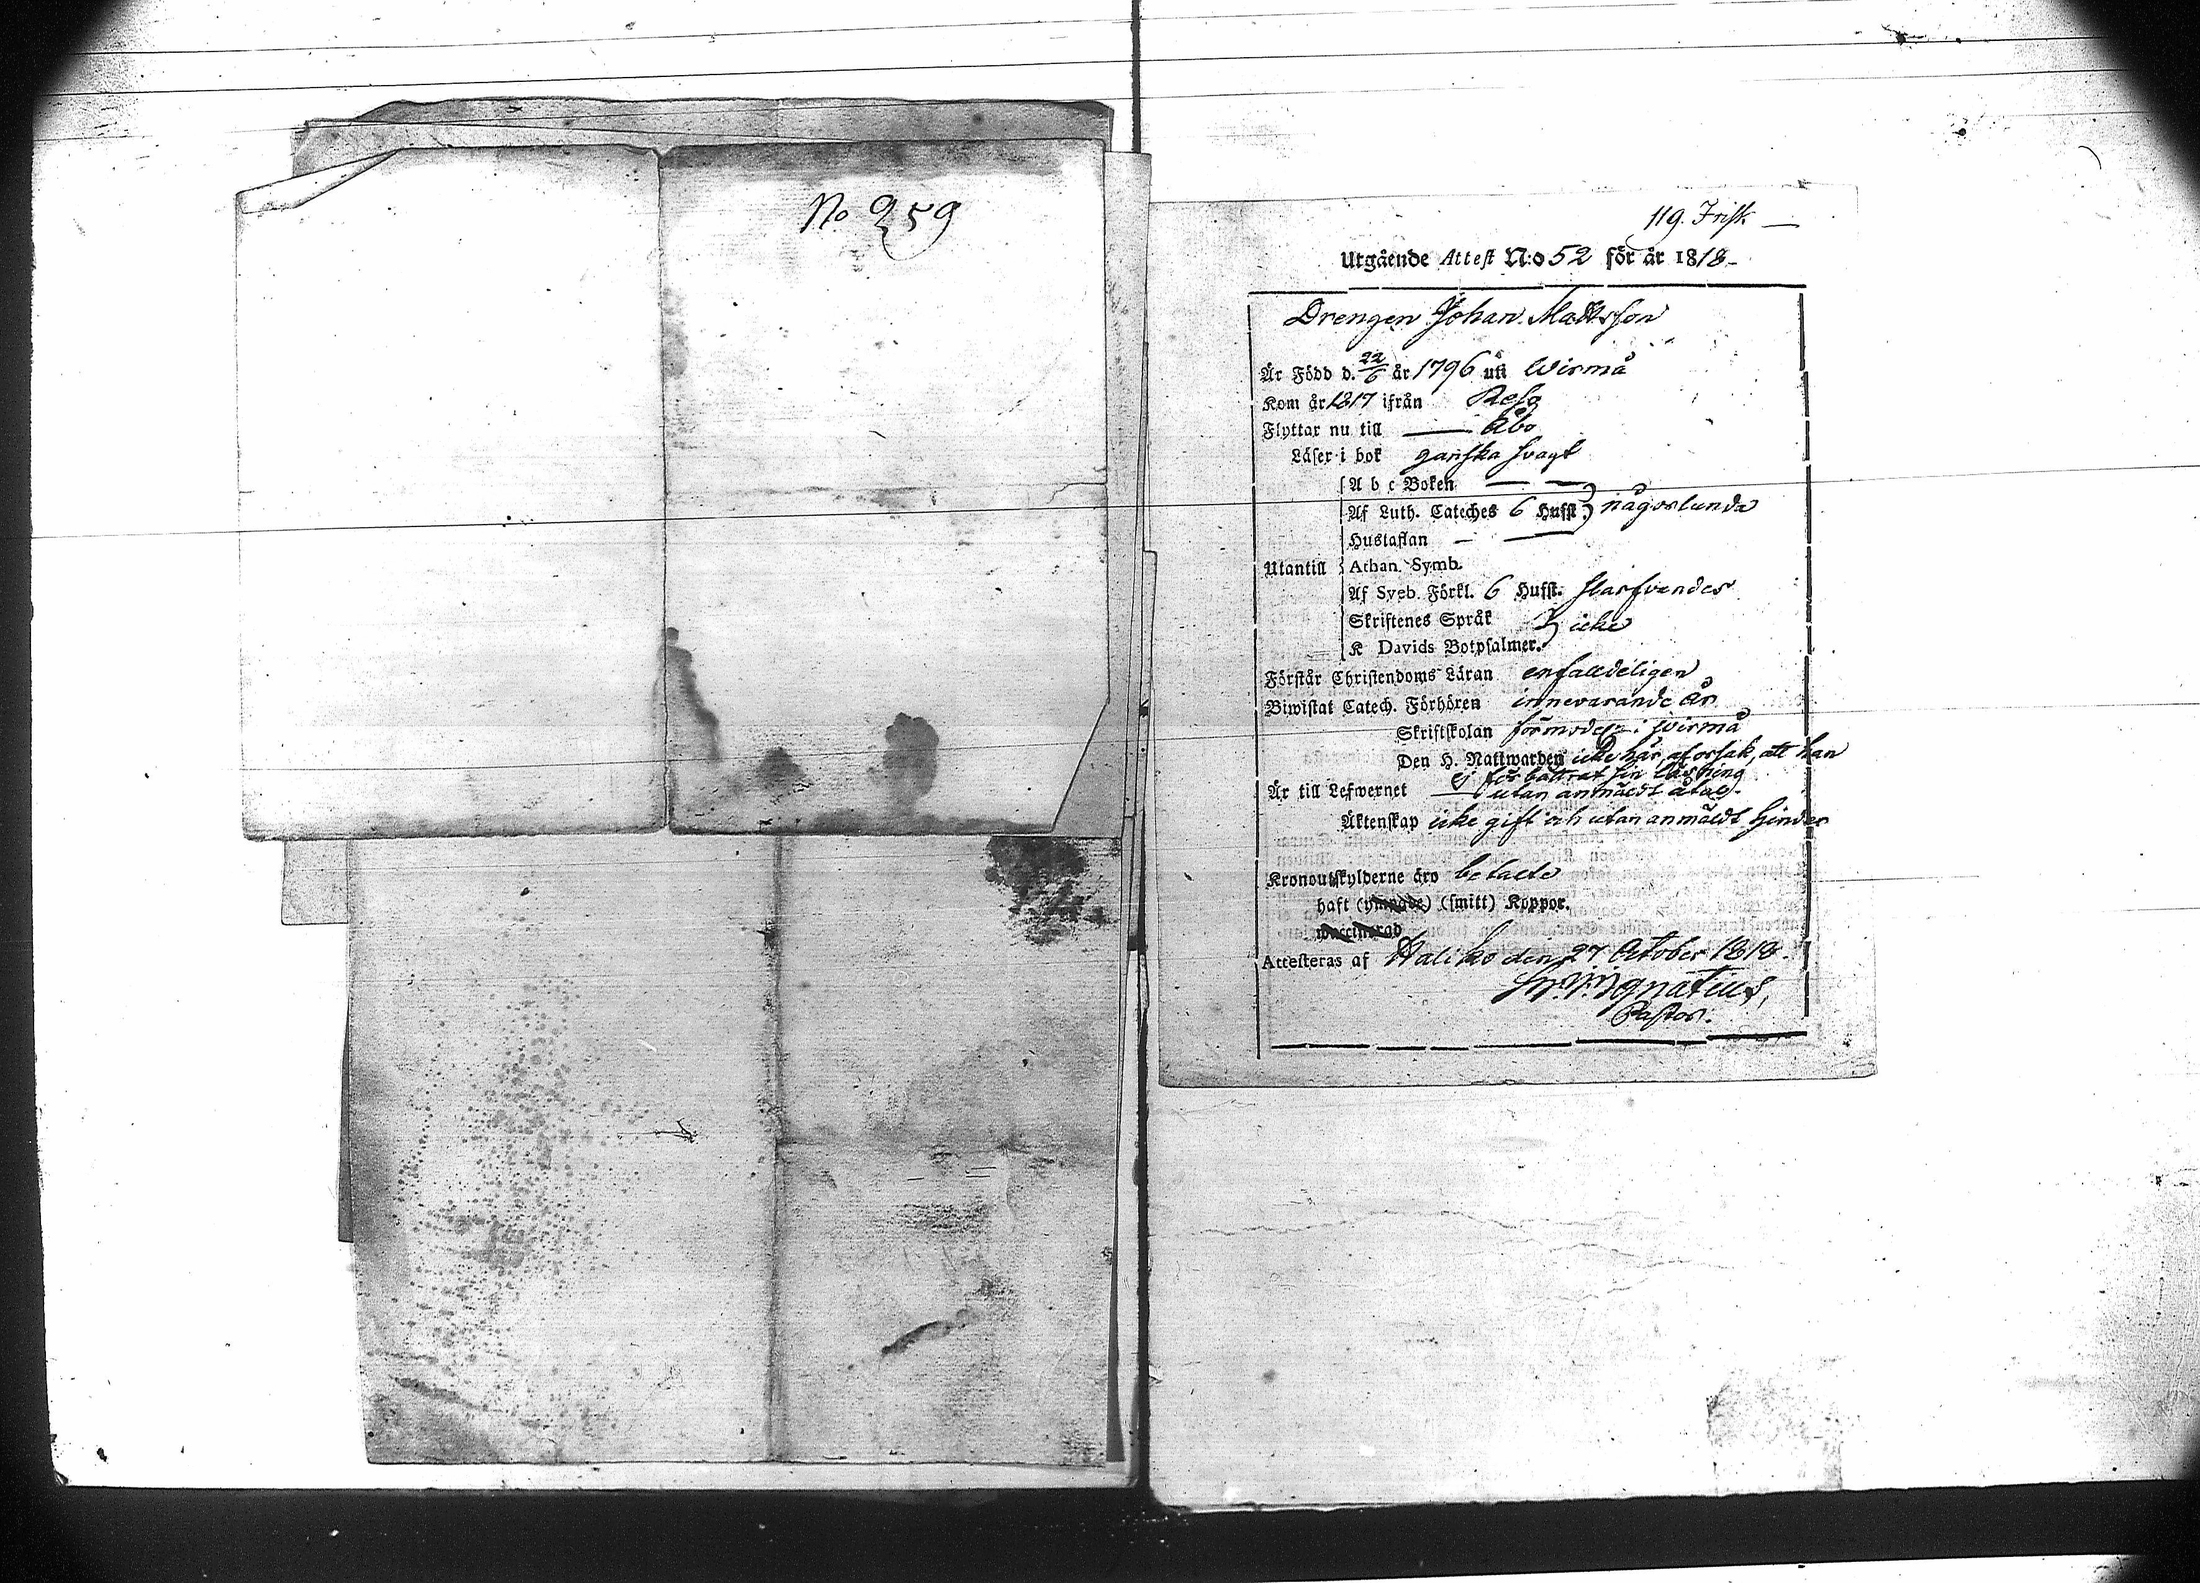 No 259
119. Frisk
Utgående Attest N:o 52 för år 1818
Drengen Johan Mattsson
Är Född d. 22/6 år 1796 uti Wirmå
Kom år 1817 ifrån Reso
Flyttar nu till Åbo
Läser i bok ganska svagt
A b c Boken
Af Luth. Cateches 6 Hufst. någorlunda
Hustaflan
Utantill Athan. Symb.
Af Sveb. Förkl. 6 Hufst. slarfvandes
Skriftenes Språk
K Davids Botpsalmer. icke
Förstår Christendoms Läran enfalldeligen
Biwistat Catech. Förhören innevarande år
Skriftskolan förmodl. i Wirmå
Den H. Nattwarden icke här, af orsak, att han
ej förbättrat sin läsning
Är till Lefwernet utan anmäldt åtal.
Äktenskap icke gift och utan anmäldt hinder
Kronoutskylderne äro betalte
haft (ympade) (smitt) Koppor.
waccinerad
Attesteras af Haliko den 27 October 1818.
Ignatius,
Pastor.